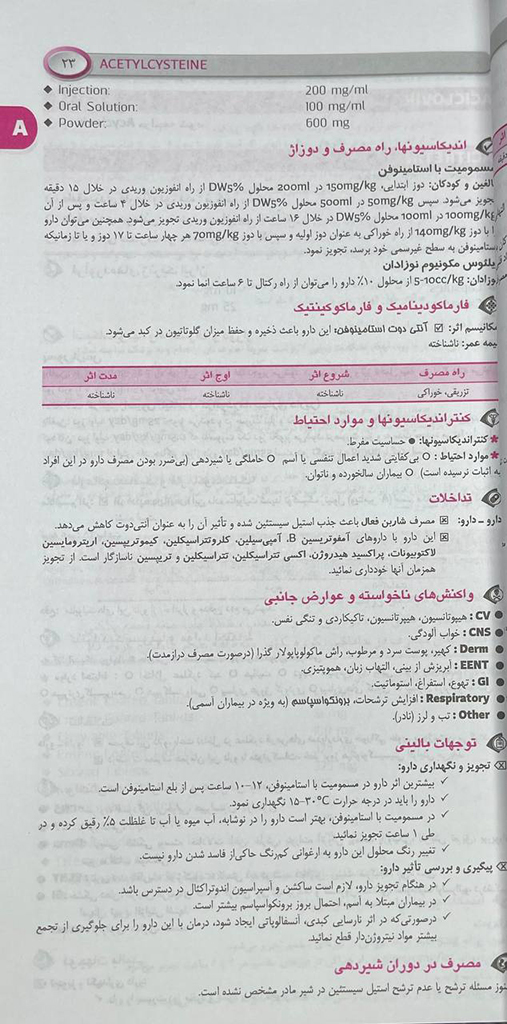 ۲۳ ACETYLCYSTEINE
A
◆ Injection: 200 mg/ml
◆ Oral Solution: 100 mg/ml
◆ Powder: 600 mg
اندیکاسیونها، راه مصرف و دوزاژ
مسمومیت با استامینوفن
الغین و کودکان: دوز ابتدایی، 150mg/kg در 200ml محلول DW5% از راه انفوزیون وریدی در خلال ۱۵ دقیقه
تجویز می‌شود. سپس 50mg/kg در 500ml محلول DW5% از راه انفوزیون وریدی در خلال ۴ ساعت و پس از آن
100mg/kg در 100ml محلول DW5% در خلال ۱۶ ساعت از راه انفوزیون وریدی تجویز می‌شود. همچنین می‌توان دارو
را با دوز 140mg/kg از راه خوراکی به عنوان دوز اولیه و سپس با دوز 70mg/kg هر چهار ساعت تا ۱۷ دوز و یا تا زمانیکه
ستامینوفن به سطح غیرسمی خود برسد، تجویز نمود.
یلئوس مکونیوم نوزادان
وزادان: 5-10cc/kg از محلول ۱۰٪ دارو را می‌توان از راه رکتال تا ۶ ساعت انما نمود.
فارماکودینامیک و فارماکوکینتیک
مکانیسم اثر: ☑ آنتی دوت استامینوفن: این دارو باعث ذخیره و حفظ میزان گلوتاتیون در کبد می‌شود.
یمه عمر: ناشناخته
راه مصرف شروع اثر اوج اثر مدت اثر
تزریقی، خوراکی ناشناخته ناشناخته ناشناخته
کنتراندیکاسیونها و موارد احتیاط
* کنتراندیکاسیونها: ● حساسیت مفرط.
* موارد احتیاط: ○ بی‌کفایتی شدید اعمال تنفسی یا آسم ○ حاملگی یا شیردهی (بی‌ضرر بودن مصرف دارو در این افراد
به اثبات نرسیده است) ○ بیماران سالخورده و ناتوان.
تداخلات
دارو ـ دارو: ☒ مصرف شاربن فعال باعث جذب استیل سیستئین شده و تأثیر آن را به عنوان آنتی‌دوت کاهش می‌دهد.
☒ این دارو با داروهای آمفوتریسین B، آمپی‌سیلین، کلروتتراسیکلین، کیموتریپسین، اریترومایسین
لاکتوبیونات، پراکسید هیدروژن، اکسی تتراسیکلین، تتراسیکلین و تریپسین ناسازگار است. از تجویز
همزمان آنها خودداری نمائید.
واکنش‌های ناخواسته و عوارض جانبی
● CV: هیپوتانسیون، هیپرتانسیون، تاکیکاردی و تنگی نفس.
● CNS: خواب آلودگی.
● Derm: کهیر، پوست سرد و مرطوب، راش ماکولوپاپولار گذرا (درصورت مصرف درازمدت).
● EENT: آبریزش از بینی، التهاب زبان، هموپتیزی.
● GI: تهوع، استفراغ، استوماتیت.
● Respiratory: افزایش ترشحات، برونکواسپاسم (به ویژه در بیماران آسمی).
● Other: تب و لرز (نادر).
توجهات بالینی
☒ تجویز و نگهداری دارو:
✓ بیشترین اثر دارو در مسمومیت با استامینوفن، ۱۲-۱۰ ساعت پس از بلع استامینوفن است.
✓ دارو را باید در درجه حرارت ۱۵-۳۰°C نگهداری نمود.
✓ در مسمومیت با استامینوفن، بهتر است دارو را در نوشابه، آب میوه یا آب تا غلظلت ۵٪ رقیق کرده و در
طی ۱ ساعت تجویز نمائید.
✓ تغییر رنگ محلول این دارو به ارغوانی کم‌رنگ حاکی‌از فاسد شدن دارو نیست.
☒ پیگیری و بررسی تأثیر دارو:
✓ در هنگام تجویز دارو، لازم است ساکشن و آسپیراسیون اندوتراکثال در دسترس باشد.
✓ در بیماران مبتلا به آسم، احتمال بروز برونکواسپاسم بیشتر است.
✓ درصورتی‌که در اثر نارسایی کبدی، آنسفالوپاتی ایجاد شود، درمان با این دارو را برای جلوگیری از تجمع
بیشتر مواد نیتروژن‌دار قطع نمائید.
مصرف در دوران شیردهی
هنوز مسئله ترشح یا عدم ترشح استیل سیستئین در شیر مادر مشخص نشده است.